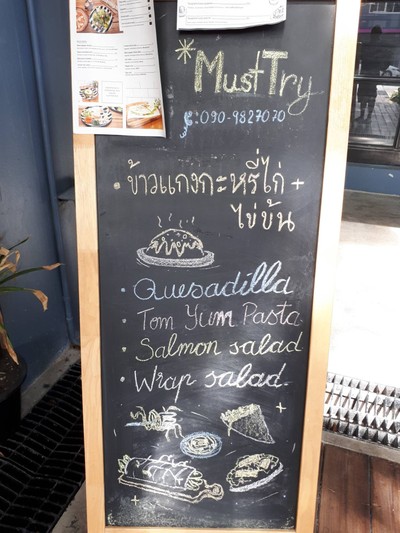 * MustTry
: 090-9827070
• ข้าวแกงกะหรี่ไก่ +
ไข่ข้น
• Quesadilla
• Tom Yum Pasta
• Salmon salad
• Wrap salad.